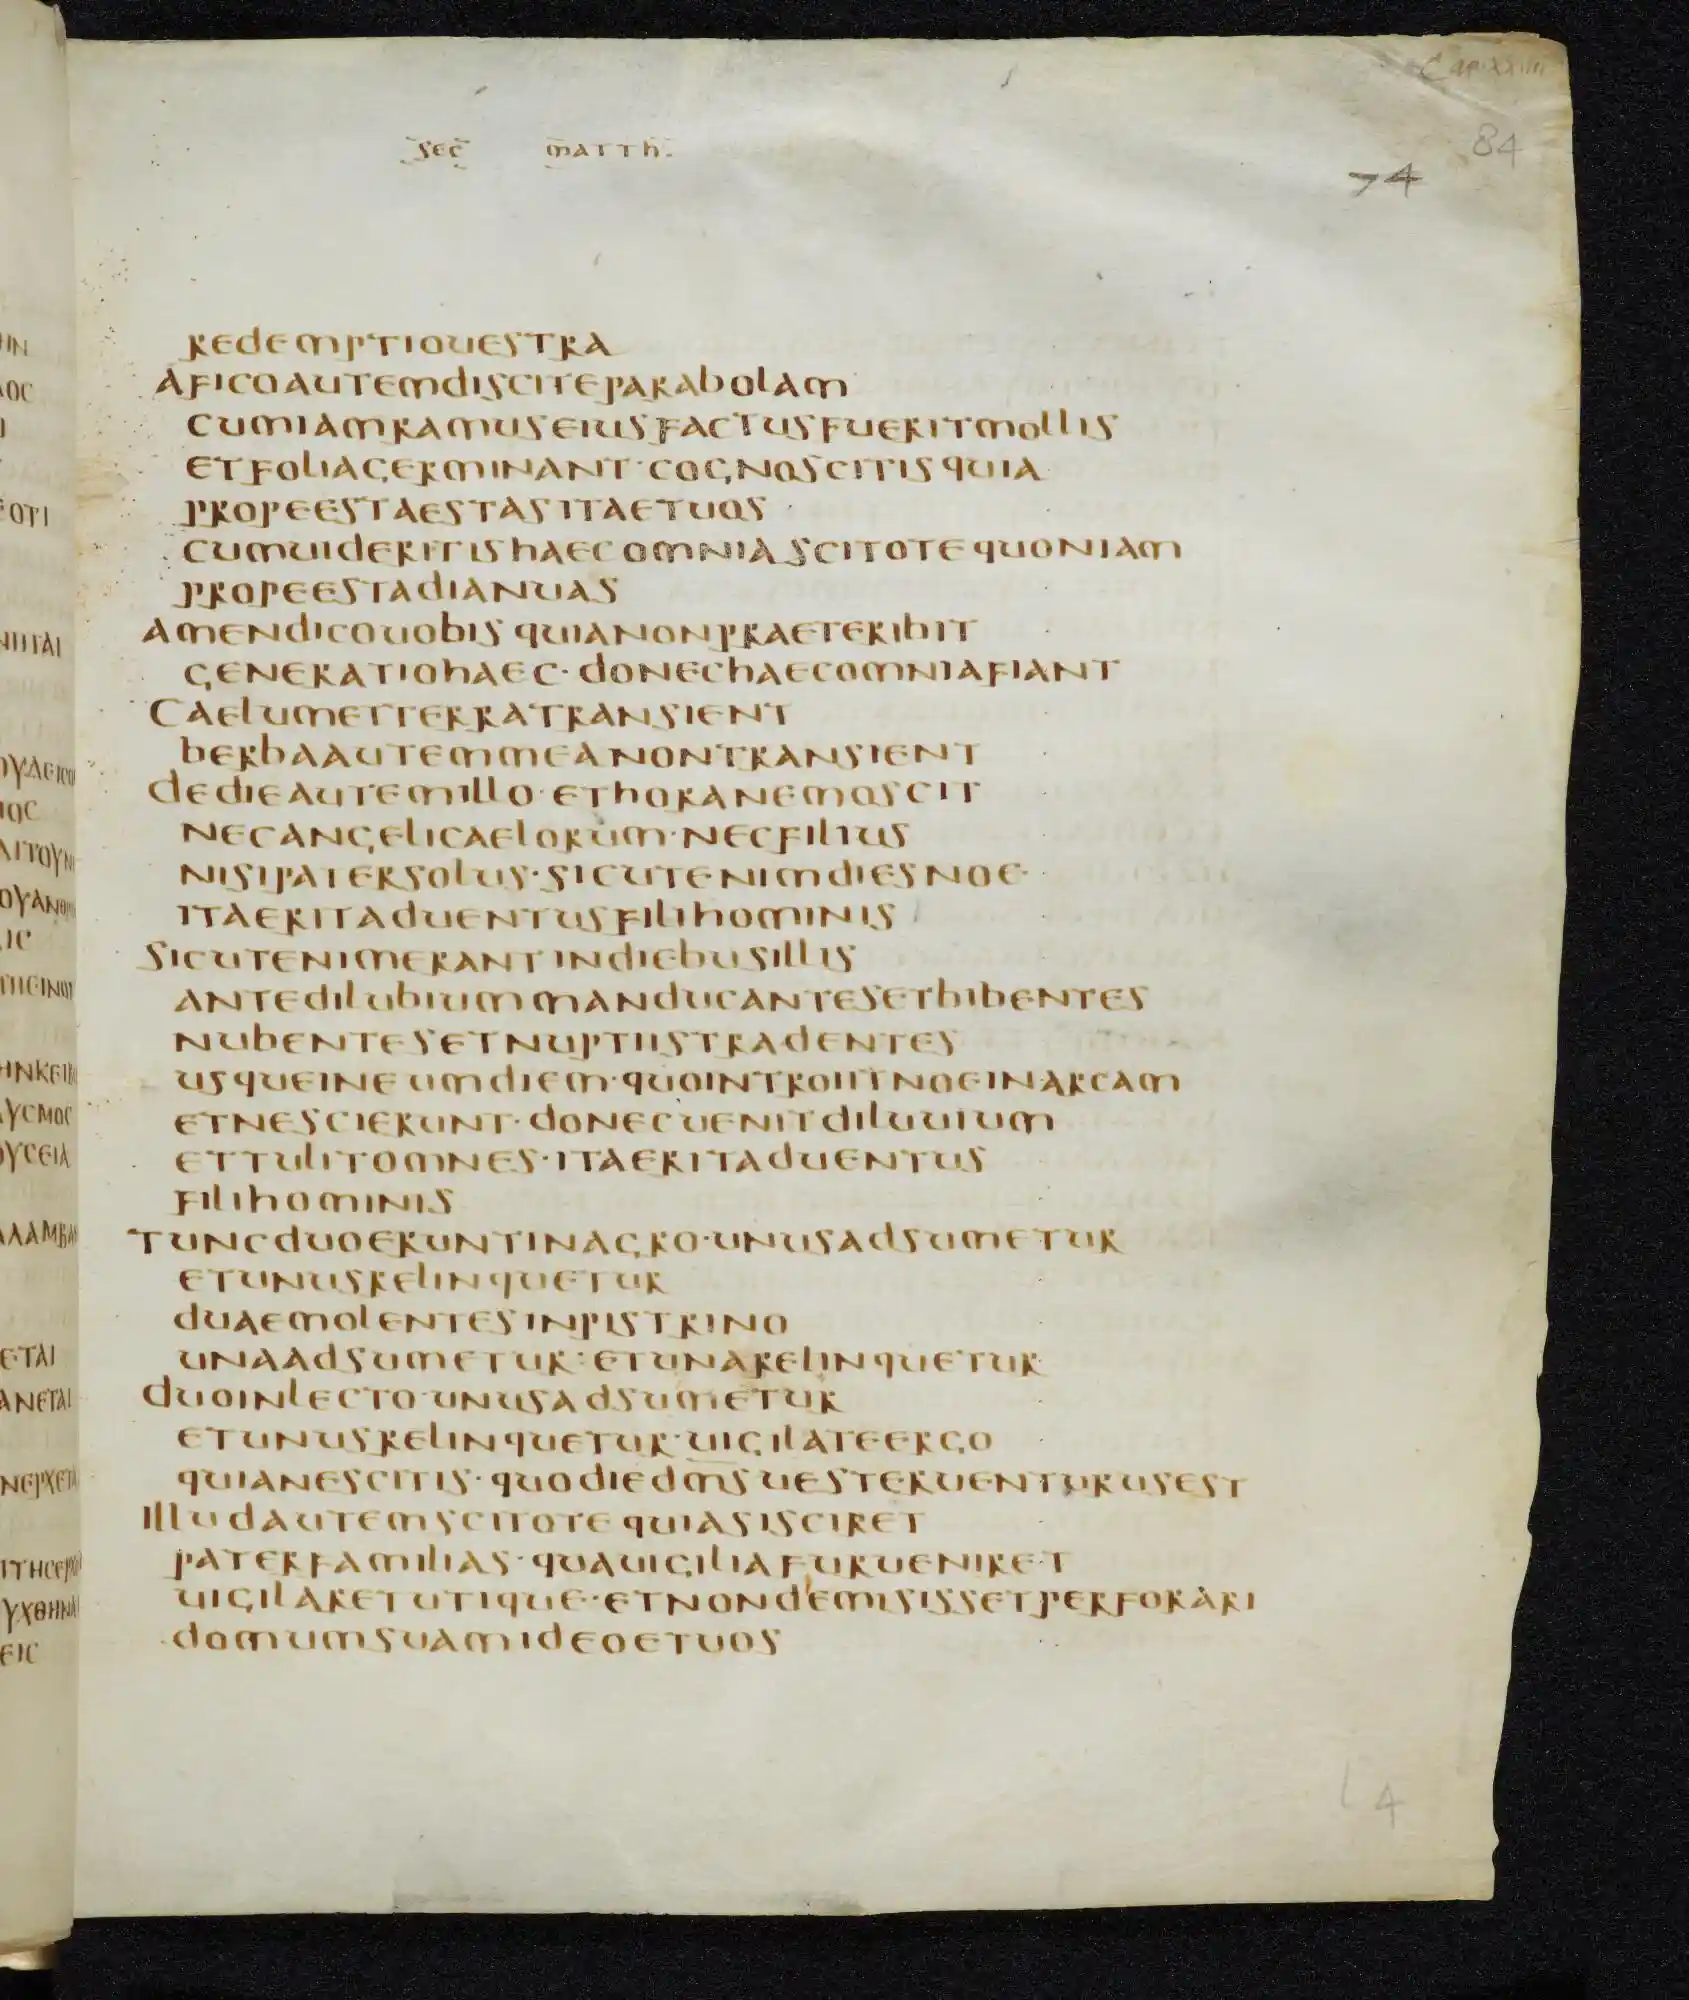 Cap. XXIIII
84
sec̅ m̅atth̅.
74
redemptiouestra
Aficoautemdisciteparabolam
cumiamramuseiusfactusfueritmollis
etfoliagerminant·cognoscitisquia
propeestaestasitaetuos
cumuideritishaecomniascitotequoniam
propeestadianuas
amendicouobisquianonpraeteribit
generatiohaec·donechaecomniafiant
Caelumetterratransient
berbaautemmeanontransient
dedieautemillo·ethoranemoscit
necangelicaelorum·necfilius
nisipatersolus·sicutenimdiesnoe·
itaeritaduentusfilihominis
Sicutenimerantindiebusillis
antedilubiummanducantesetbibentes
nubentesetnuptiistradentes
usqueineumdiem·quointroiitnoeinarcam
etnescierunt·donecuenitdiluuium
ettulitomnes·itaeritaduentus
filihominis
tuncduoeruntinagro·unusadsumetur
etunusrelinquetur
duaemolentesinpistrino
unaadsumetur:etunarelinquetur
duoinlecto·unusadsumetur
etunusrelinquetur·uigilateergo
quianescitis·quodiedm̅suesteruenturusest
Illudautemscitotequiasisciret
paterfamilias·quauigiliafurueniret
uigilaretutique·etnondemisissetperforari
domumsuamideoetuos
L 4